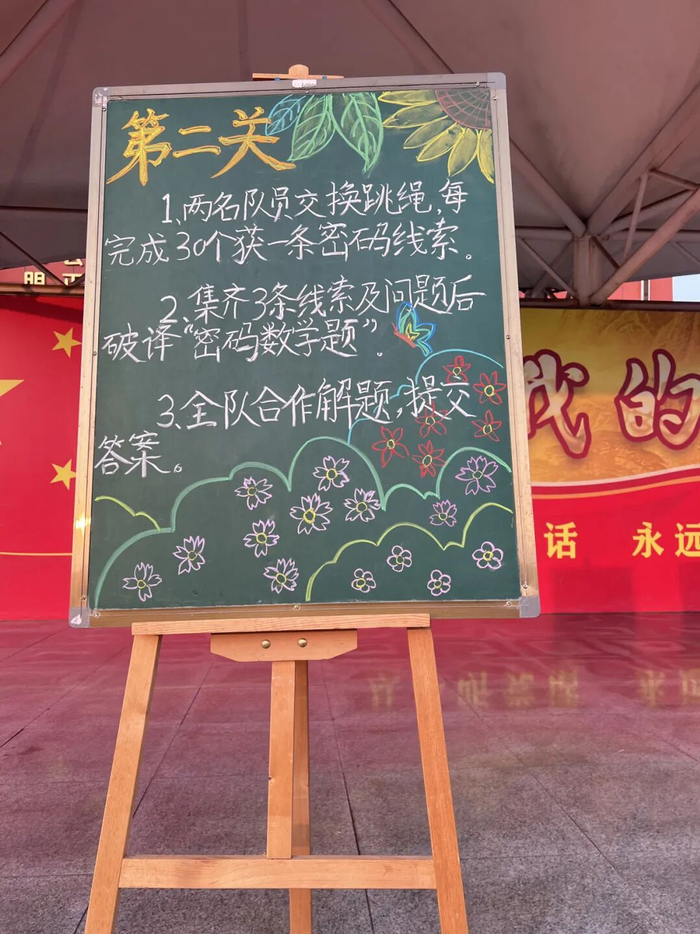 第二关
1、两名队员交换跳绳,每
完成30个获一条密码线索。
2、集齐3条线索及问题后
破译“密码数学题”。
3、全队合作解题,提交
答案。
我的
话 永远